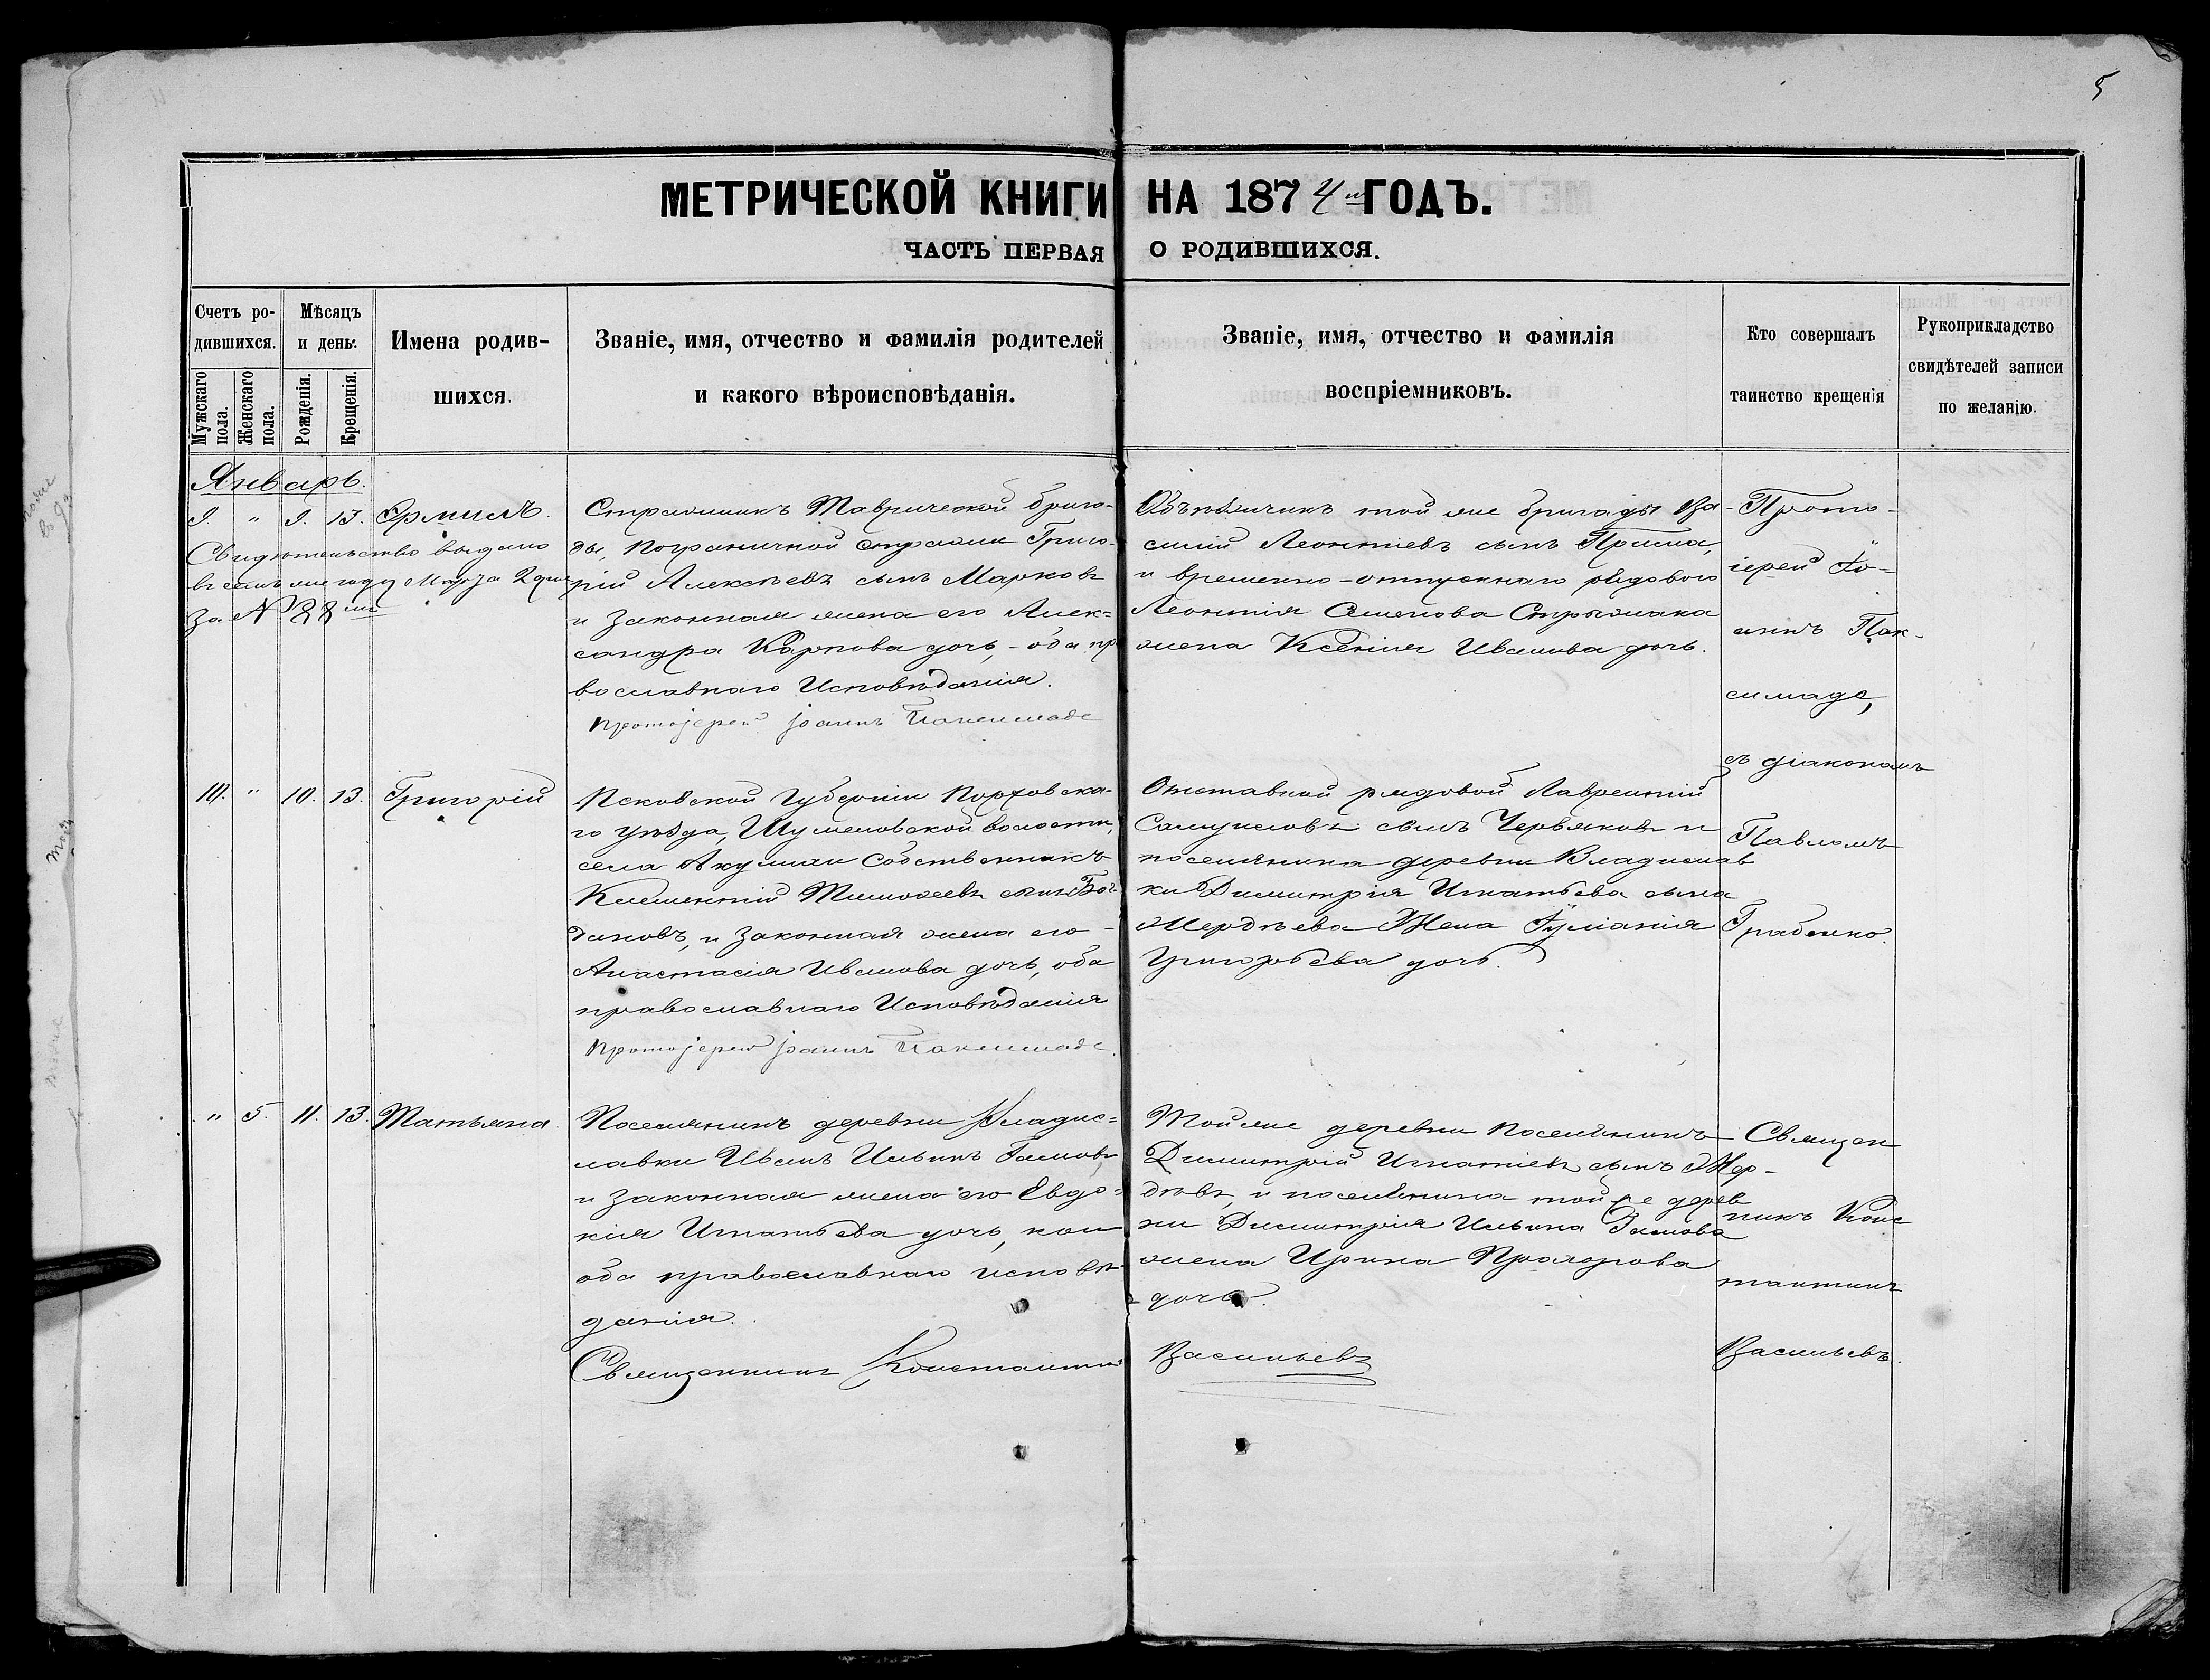 5
МЕТРИЧЕСКОЙ КНИГИ НА 1874й ГОДЪ.
ЧАСТЬ ПЕРВАЯ О РОДИВШИХСЯ.
Счетъ ро-
дившихся.
Мужскаго пола.
Женскаго пола.
Мѣсяцъ
и день.
Рожденія.
Крещенія.
Имена родив-
шихся.
Званіе, имя, отчество и фамилія родителей
и какого вѣроисповѣданія.
Званіе, имя, отчество и фамилія
воспріемниковъ.
Кто совершалъ
таинство крещенія
Рукоприкладство
свидѣтелей записи
по желанію.
Январь.
9. " 9. 13. Ермилъ.
Свидѣтельство выдано
въ семъ же году Марта 2 дня
за № 88
Стражникъ Таврической брига-
ды, пограничной стражи Григо-
рій Алексѣевъ сынъ Марковъ
и законная жена его Алек=
сандра Карпова дочь, - оба пр
вославнаго Исповѣданія.
Протоіерей Іоаннъ Паксимаде
Объѣзчикъ той же бригады Ва-
силій Леонтіевъ сынъ
и временно-отпускнаго рядового
Леонтія Семенова
жена Ксенія Иванова дочь.
Прото-
іерей Іо-
аннъ Пак-
симаде,
съ діакономъ
Павломъ
Грабенко.
10. " 10. 13. Григорій
Псковской Губерніи Порховска-
го уѣзда, Шумеловской волости,
села Акулихи Собственникъ
Климентій Тимоѳеевъ сынъ Бог-
дановъ, и законная жена его
Анастасія Иванова дочь, оба
православнаго Исповѣданія
Протоіерей Іоаннъ Паксимаде.
Отставной рядовой Лаврентій
Самуиловъ сынъ Червяковъ и
поселянина деревни Владислав
ки Димитрія Игнатьева сына
Мердѣева Жена Іуліанія
Григорьева дочь.
" 5. 11. 13. Татьяна.
Поселянинъ деревни Владис=
лавки Иванъ Ильинъ
и законная жена его Евдо=
кія Игнатьева дочь, кои
оба православнаго исповѣ-
данія.
Священникъ Константинъ Васильевъ
Той же деревни поселянинъ
Димитрій Игнатіевъ сынъ Мер-
дѣевъ, и поселянина той же дерев
ни Димитрія Ильина
жена Ирина Прохорова
дочь.
Священ
никъ Конс
тантинъ
Васильевъ.